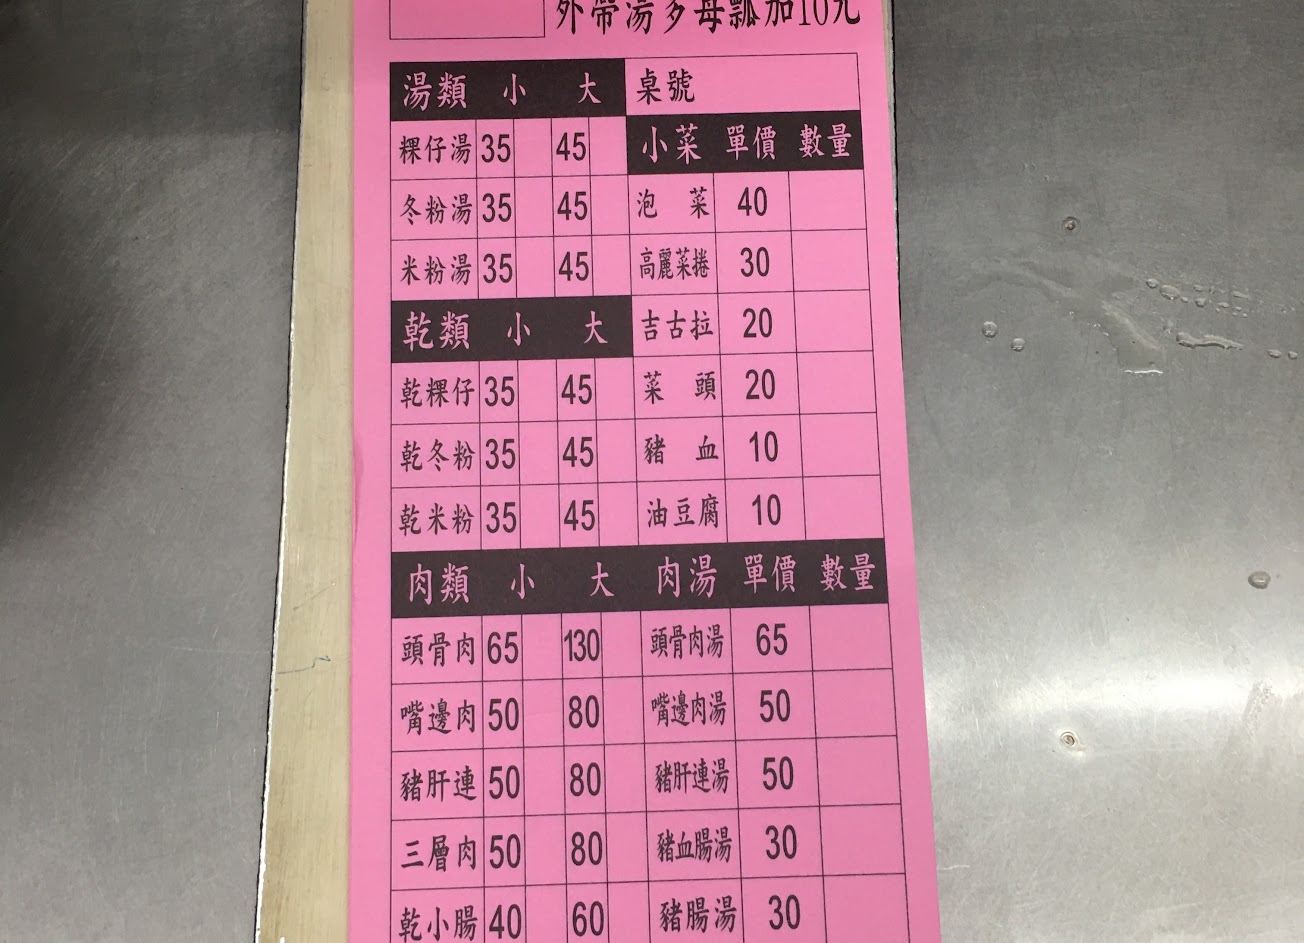 外帶湯多每瓢加10元
湯類 小 大 桌號
粿仔湯 35 45 小菜 單價 數量
冬粉湯 35 45 泡菜 40
米粉湯 35 45 高麗菜捲 30
乾類 小 大 吉古拉 20
乾粿仔 35 45 菜頭 20
乾冬粉 35 45 豬血 10
乾米粉 35 45 油豆腐 10
肉類 小 大 肉湯 單價 數量
頭骨肉 65 130 頭骨肉湯 65
嘴邊肉 50 80 嘴邊肉湯 50
豬肝連 50 80 豬肝連湯 50
三層肉 50 80 豬血腸湯 30
乾小腸 40 60 豬腸湯 30